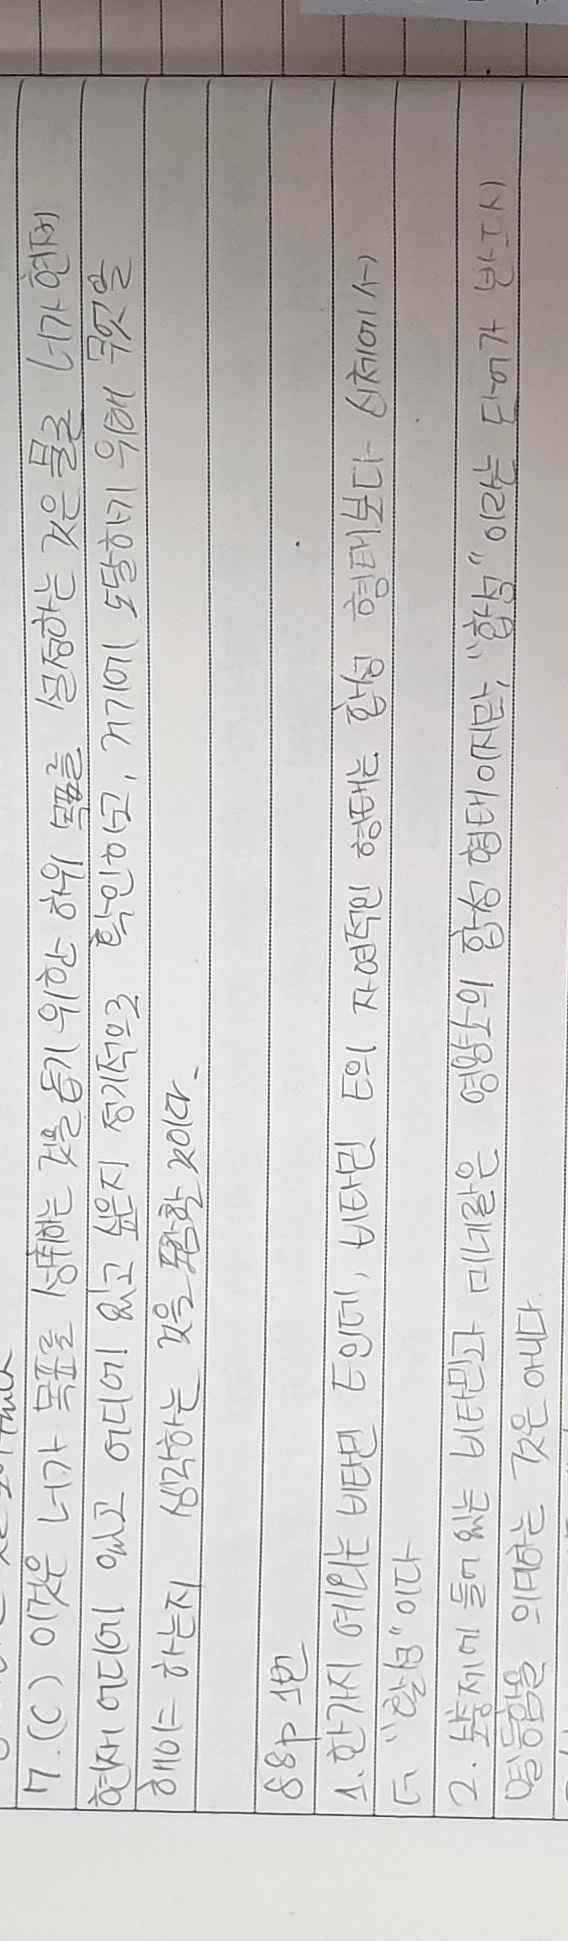 7. (C) 이것은 너가 목표를 성취하는 것을 돕기 위한 하위 목표를 설정하는 것은 물론 너가 현재
현재 어디에 있고 어디에 있고 싶은지 정기적으로 확인하고, 거기에 도달하기 위해 무엇을
해야 하는지 생각하는 것을 포함할 것이다.
88p 1번
1. 한가지 예외는 비타민 E인데, 비타민 E의 자연적인 형태는 합성 형태보다 신체에서
더 "활성"이다
2. 보충제에 들어 있는 비타민과 미네랄은 영양소의 합성 형태이지만, "합성"이라는 단어가 반드시
열등함을 의미하는 것은 아니다.